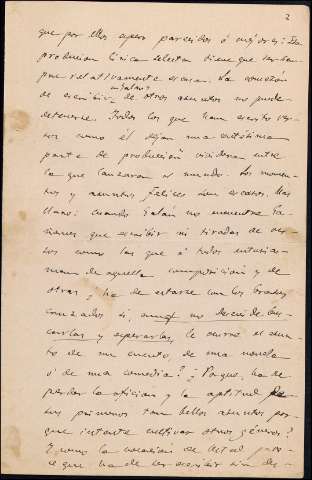 2
que por ellos espero parecidos ó mejores: la
producción lírica selecta tiene que ser siem
pre relativamente escasa. La comezón
de escribir de otros asuntos no puede
detenerse. Todos los que han escrito ver-
sos como él dejan una cantidad
parte de producción entre
la que lanzaron al mundo. Los momen-
tos y asuntos felices son escasos. Mas
llano: cuando Catalán no encuentre ra-
zones que escribir ni tiradas de ver-
sos como las que á todos entusias-
man de aquella composición y de
otras, ¿ha de estarse con los brazos
cruzados si, aunque no descuide bus-
carlas y esperarlas, le ocurre el asun-
to de un cuento, de una novela
ó de una comedia? ¿Porque, ha de
perder la aficion y la aptitud
tan bellos asuntos por-
que intente cultivar otros géneros?
Y como la vocacion de Vd. tal pare-
ce que ha de ser escribir sin des-